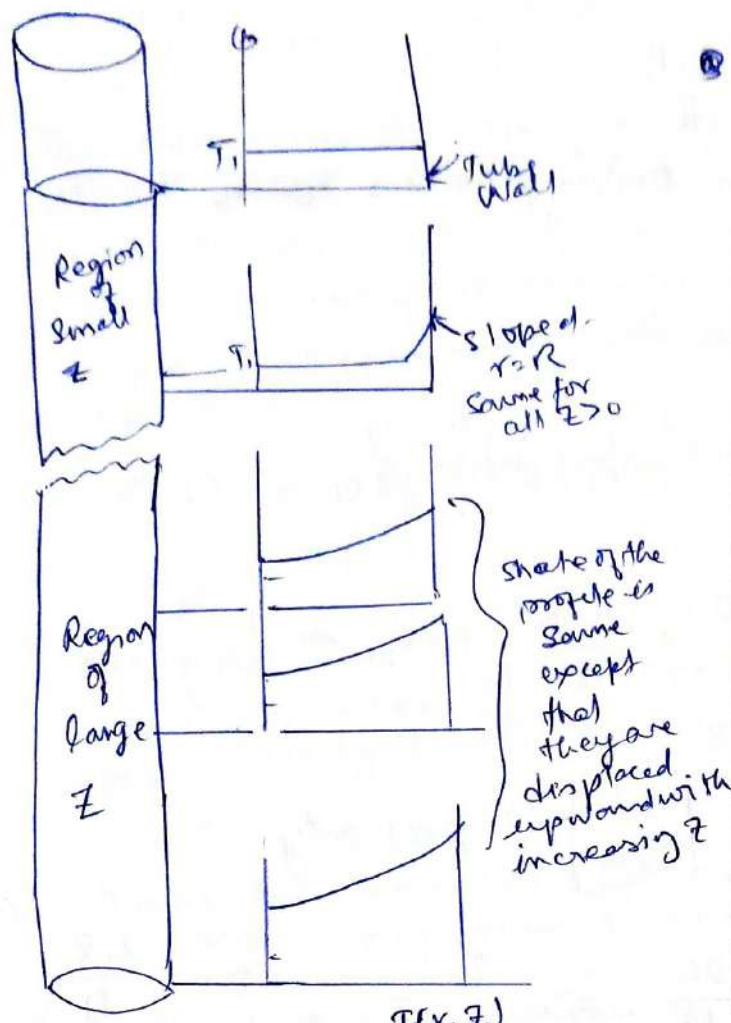 T₁
Tube
Wall
Region
of
Small
Z
T₁
slope at
r=R
Same for
all Z>0
Region
of
large
Z
shate of the
profile is
Same
except
that
they are
displaced
upward with
increasing Z
T(r, Z)